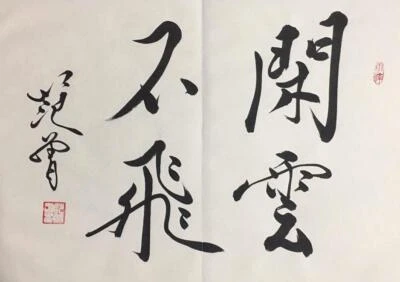 閑雲
不飛
范曾